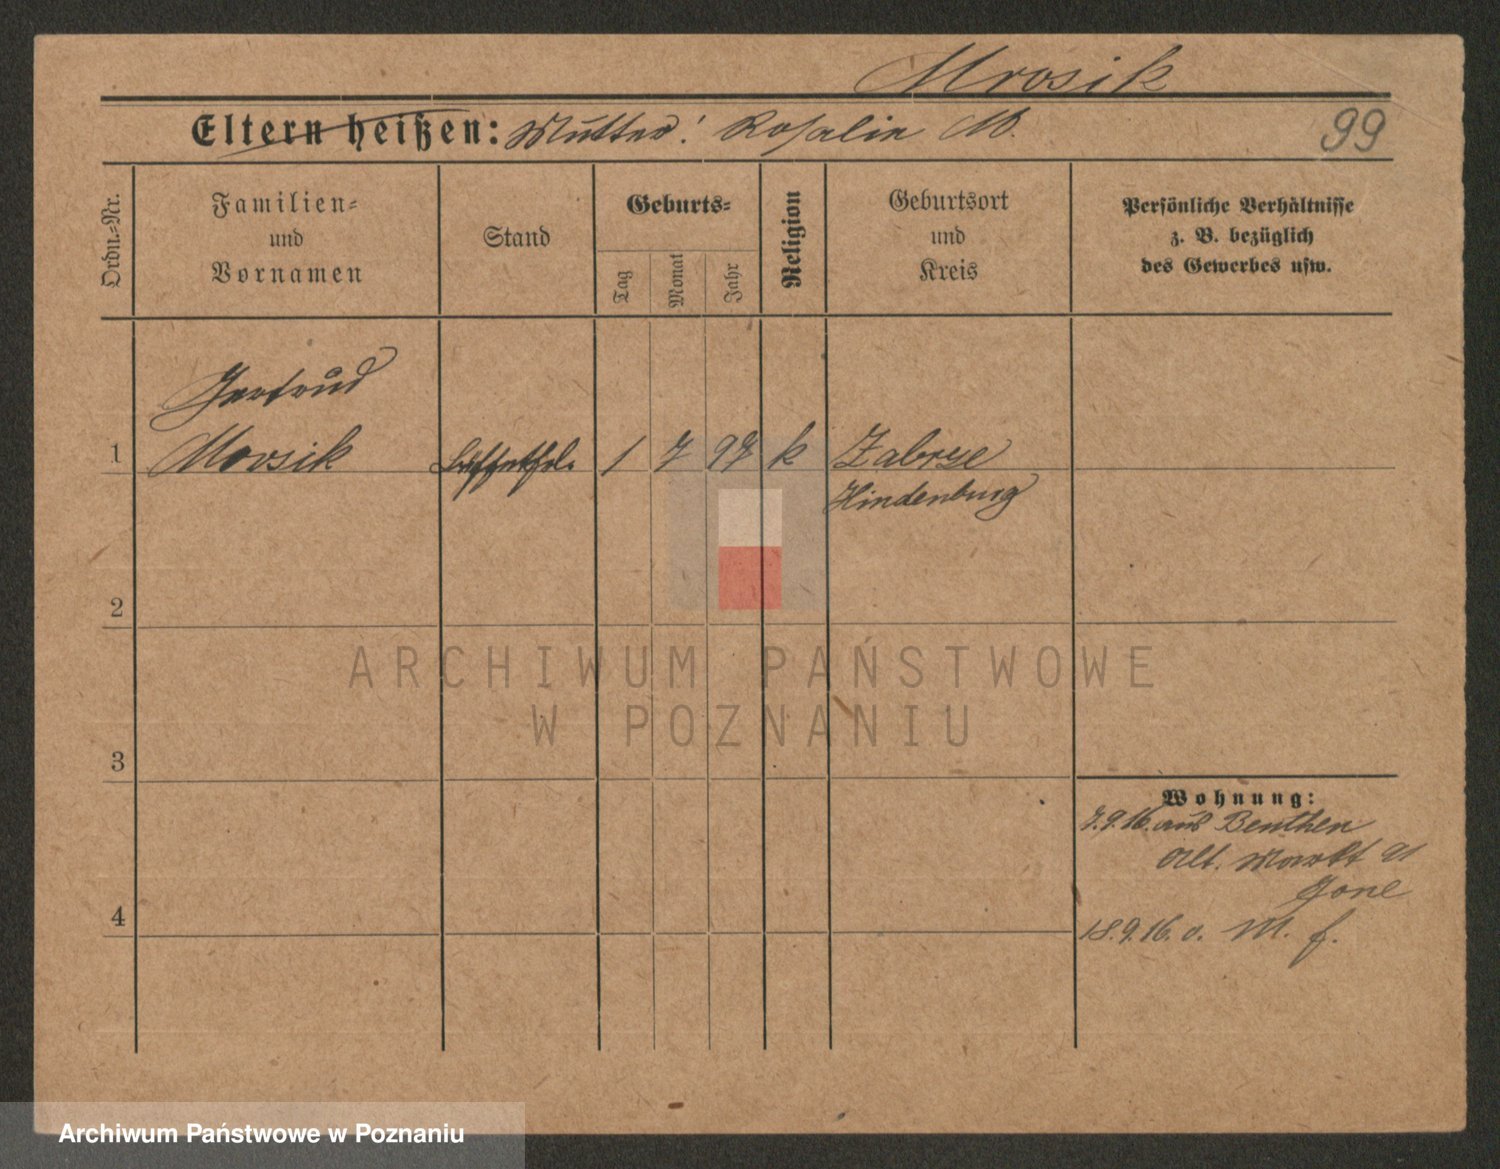 Mrosik
Eltern heißen: Mutter: Rosalie M.
99
Ordn.-Nr.
Familien-
und
Vornamen
Stand
Geburts-
Tag
Monat
Jahr
Religion
Geburtsort
und
Kreis
Persönliche Verhältnisse
z. B. bezüglich
des Gewerbes usw.
Gertrud
1 Mrosik 1 7 97 k Zabrze
Hindenburg
2
ARCHIWUM PAŃSTWOWE
W POZNANIU
3
Wohnung:
7.9.16. aus Beuthen
Alt. Markt 91
4
18.9.16. v. M. f.
Archiwum Państwowe w Poznaniu